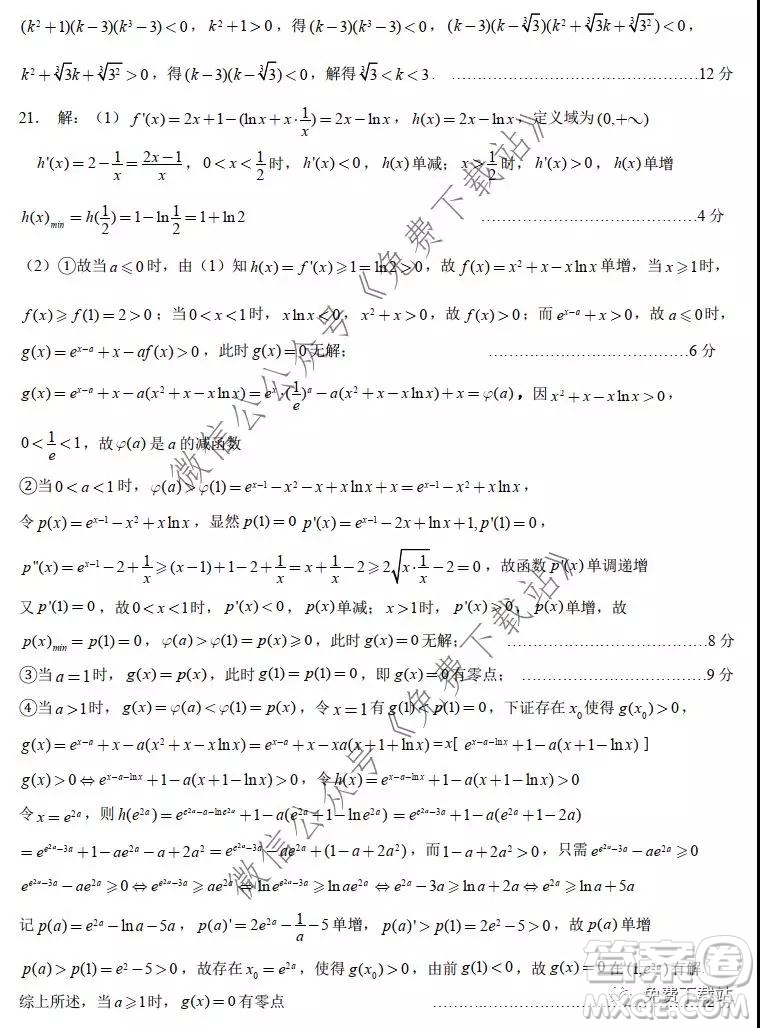 (k²+1)(k−3)(k³−3)<0，k²+1>0，得(k−3)(k³−3)<0，(k−3)(k−∛3)(k²+∛3k+∛3²)<0，
k²+∛3k+∛3²>0，得(k−3)(k−∛3)<0，解得∛3<k<3. ……………………………………12分
21. 解：（1）f'(x)=2x+1−(lnx+x·1/x)=2x−lnx，h(x)=2x−lnx，定义域为(0,+∞)
h'(x)=2−1/x=(2x−1)/x，0<x<1/2时，h'(x)<0，h(x)单减；x>1/2时，h'(x)>0，h(x)单增
h(x)min=h(1/2)=1−ln1/2=1+ln2 ……………………………………4分
（2）①故当a⩽0时，由（1）知h(x)=f'(x)⩾1=ln2>0，故f(x)=x²+x−xlnx单增，当x⩾1时，
f(x)⩾f(1)=2>0；当0<x<1时，xlnx<0，x²+x>0，故f(x)>0；而eˣ⁻ᵃ+x>0，故a⩽0时，
g(x)=eˣ⁻ᵃ+x−af(x)>0，此时g(x)=0无解； ……………………………………6分
g(x)=eˣ⁻ᵃ+x−a(x²+x−xlnx)=eˣ·(1/e)ᵃ−a(x²+x−xlnx)+x=φ(a)，因x²+x−xlnx>0，
0<1/e<1，故φ(a)是a的减函数
②当0<a<1时，φ(a)>φ(1)=eˣ⁻¹−x²−x+xlnx+x=eˣ⁻¹−x²+xlnx，
令p(x)=eˣ⁻¹−x²+xlnx，显然p(1)=0 p'(x)=eˣ⁻¹−2x+lnx+1,p'(1)=0，
p''(x)=eˣ⁻¹−2+1/x⩾(x−1)+1−2+1/x=x+1/x−2⩾2√(x·1/x)−2=0，故函数p'(x)单调递增
又p'(1)=0，故0<x<1时，p'(x)<0，p(x)单减；x>1时，p'(x)>0，p(x)单增，故
p(x)min=p(1)=0，φ(a)>φ(1)=p(x)⩾0，此时g(x)=0无解； ……………………………………8分
③当a=1时，g(x)=p(x)，此时g(1)=p(1)=0，即g(x)=0有零点； ……………………………………9分
④当a>1时，g(x)=φ(a)<φ(1)=p(x)，令x=1有g(1)<p(1)=0，下证存在x₀使得g(x₀)>0，
g(x)=eˣ⁻ᵃ+x−a(x²+x−xlnx)=eˣ⁻ᵃ+x−xa(x+1+lnx)=x[ e^(x−a−lnx)+1−a(x+1−lnx) ]
g(x)>0⇔e^(x−a−lnx)+1−a(x+1−lnx)>0，令h(x)=e^(x−a−lnx)+1−a(x+1−lnx)>0
令x=e²ᵃ，则h(e²ᵃ)=e^(e²ᵃ−a−lne²ᵃ)+1−a(e²ᵃ+1−lne²ᵃ)=e^(e²ᵃ−3a)+1−a(e²ᵃ+1−2a)
=e^(e²ᵃ−3a)+1−ae²ᵃ−a+2a²=e^(e²ᵃ−3a)−ae²ᵃ+(1−a+2a²)，而1−a+2a²>0，只需e^(e²ᵃ−3a)−ae²ᵃ⩾0
e^(e²ᵃ−3a)−ae²ᵃ⩾0⇔e^(e²ᵃ−3a)⩾ae²ᵃ⇔lne^(e²ᵃ−3a)⩾lnae²ᵃ⇔e²ᵃ−3a⩾lna+2a⇔e²ᵃ⩾lna+5a
记p(a)=e²ᵃ−lna−5a，p(a)'=2e²ᵃ−1/a−5单增，p(a)'>p(1)=2e²−5>0，故p(a)单增
p(a)>p(1)=e²−5>0，故存在x₀=e²ᵃ，使得g(x)>0，由前g(1)<0，故g(x)=0在(1,e²ᵃ)有解.
综上所述，当a⩾1时，g(x)=0有零点
微信公众号《免费下载站》
微信公众号《免费下载站》
答案圈
免费下载站